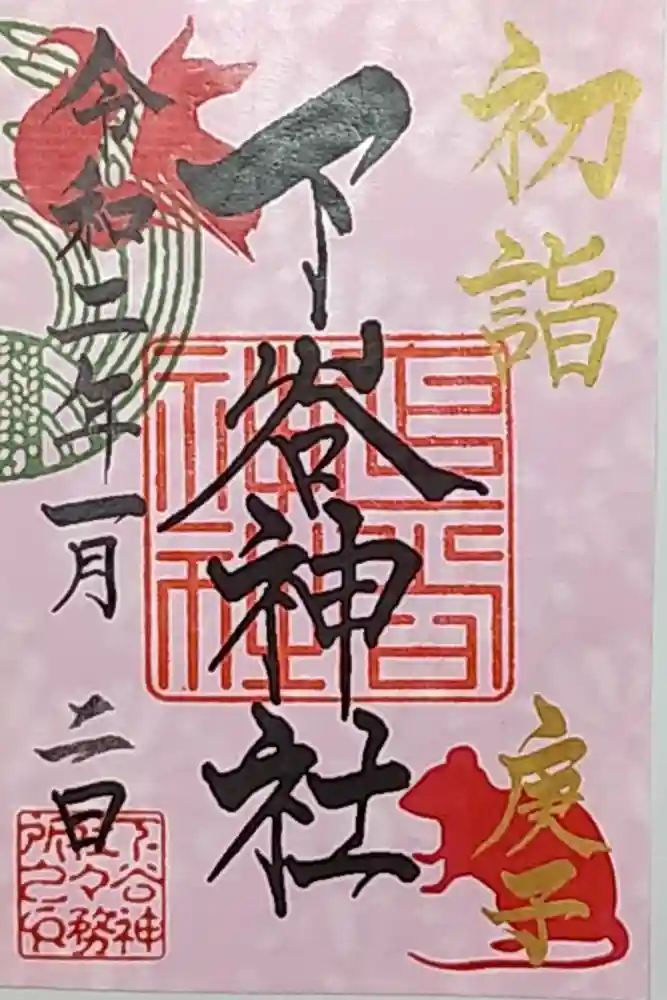 初詣
庚子
下谷神社
令和二年一月
二日
下谷神
社々務
所之印